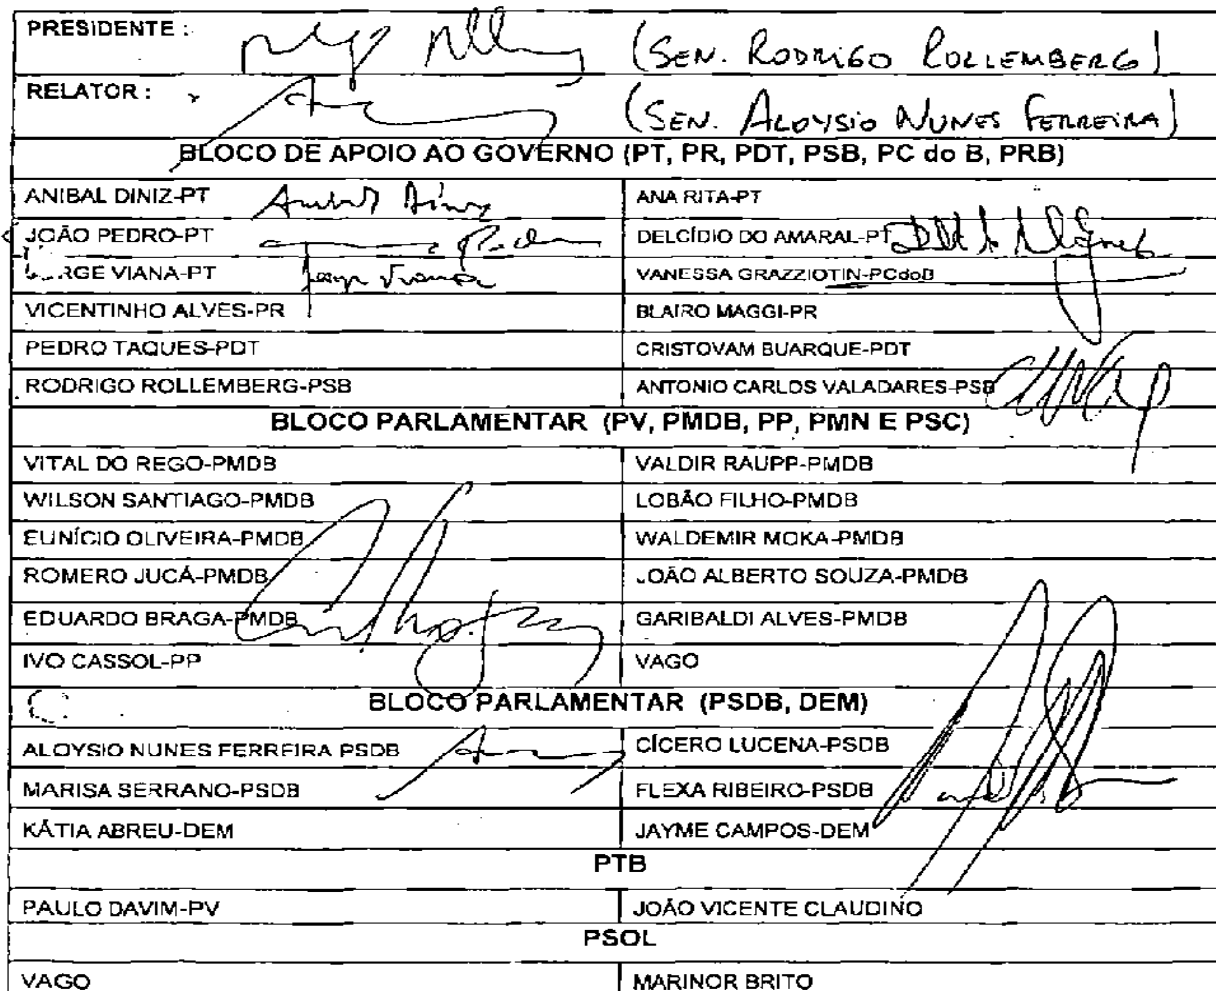 PRESIDENTE : (SEN. RODRIGO ROLLEMBERG)
RELATOR : (SEN. ALOYSIO NUNES FERREIRA)
BLOCO DE APOIO AO GOVERNO (PT, PR, PDT, PSB, PC do B, PRB)
ANIBAL DINIZ-PT Anibal Diniz ANA RITA-PT
JOÃO PEDRO-PT DELCÍDIO DO AMARAL-PT
RGE VIANA-PT Jorge Viana VANESSA GRAZZIOTIN-PCdoB
VICENTINHO ALVES-PR BLAIRO MAGGI-PR
PEDRO TAQUES-PDT CRISTOVAM BUARQUE-PDT
RODRIGO ROLLEMBERG-PSB ANTONIO CARLOS VALADARES-PSB
BLOCO PARLAMENTAR (PV, PMDB, PP, PMN E PSC)
VITAL DO REGO-PMDB VALDIR RAUPP-PMDB
WILSON SANTIAGO-PMDB LOBÃO FILHO-PMDB
EUNÍCIO OLIVEIRA-PMDB WALDEMIR MOKA-PMDB
ROMERO JUCÁ-PMDB JOÃO ALBERTO SOUZA-PMDB
EDUARDO BRAGA-PMDB GARIBALDI ALVES-PMDB
IVO CASSOL-PP VAGO
BLOCO PARLAMENTAR (PSDB, DEM)
ALOYSIO NUNES FERREIRA PSDB CÍCERO LUCENA-PSDB
MARISA SERRANO-PSDB FLEXA RIBEIRO-PSDB
KÁTIA ABREU-DEM JAYME CAMPOS-DEM
PTB
PAULO DAVIM-PV JOÃO VICENTE CLAUDINO
PSOL
VAGO MARINOR BRITO